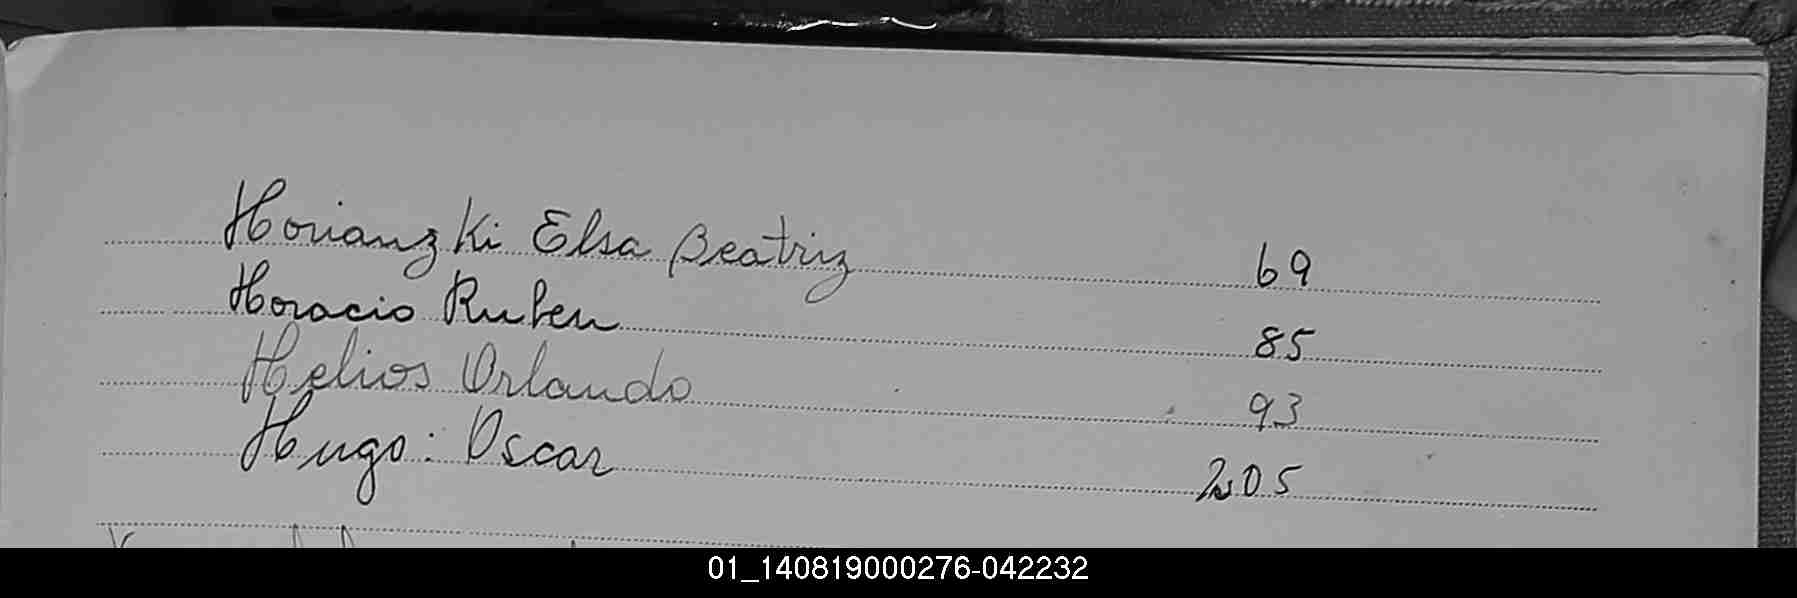 Horianzki Elsa Beatriz 69
Horacio Ruben 85
Helios Orlando 93
Hugo: Oscar 205
01_140819000276-042232